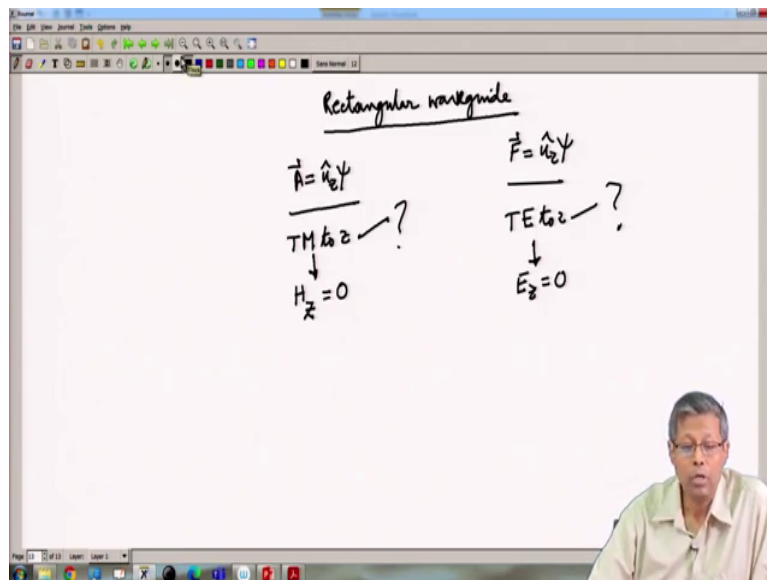 File Edit View Journal Tools Options Help
Sans Normal 12
Rectangular waveguide
A⃗ = û_z ψ
TM to z ?
H_z = 0
F⃗ = û_z ψ
TE to z ?
E_z = 0
Page 13 of 13 Layer: Layer 1